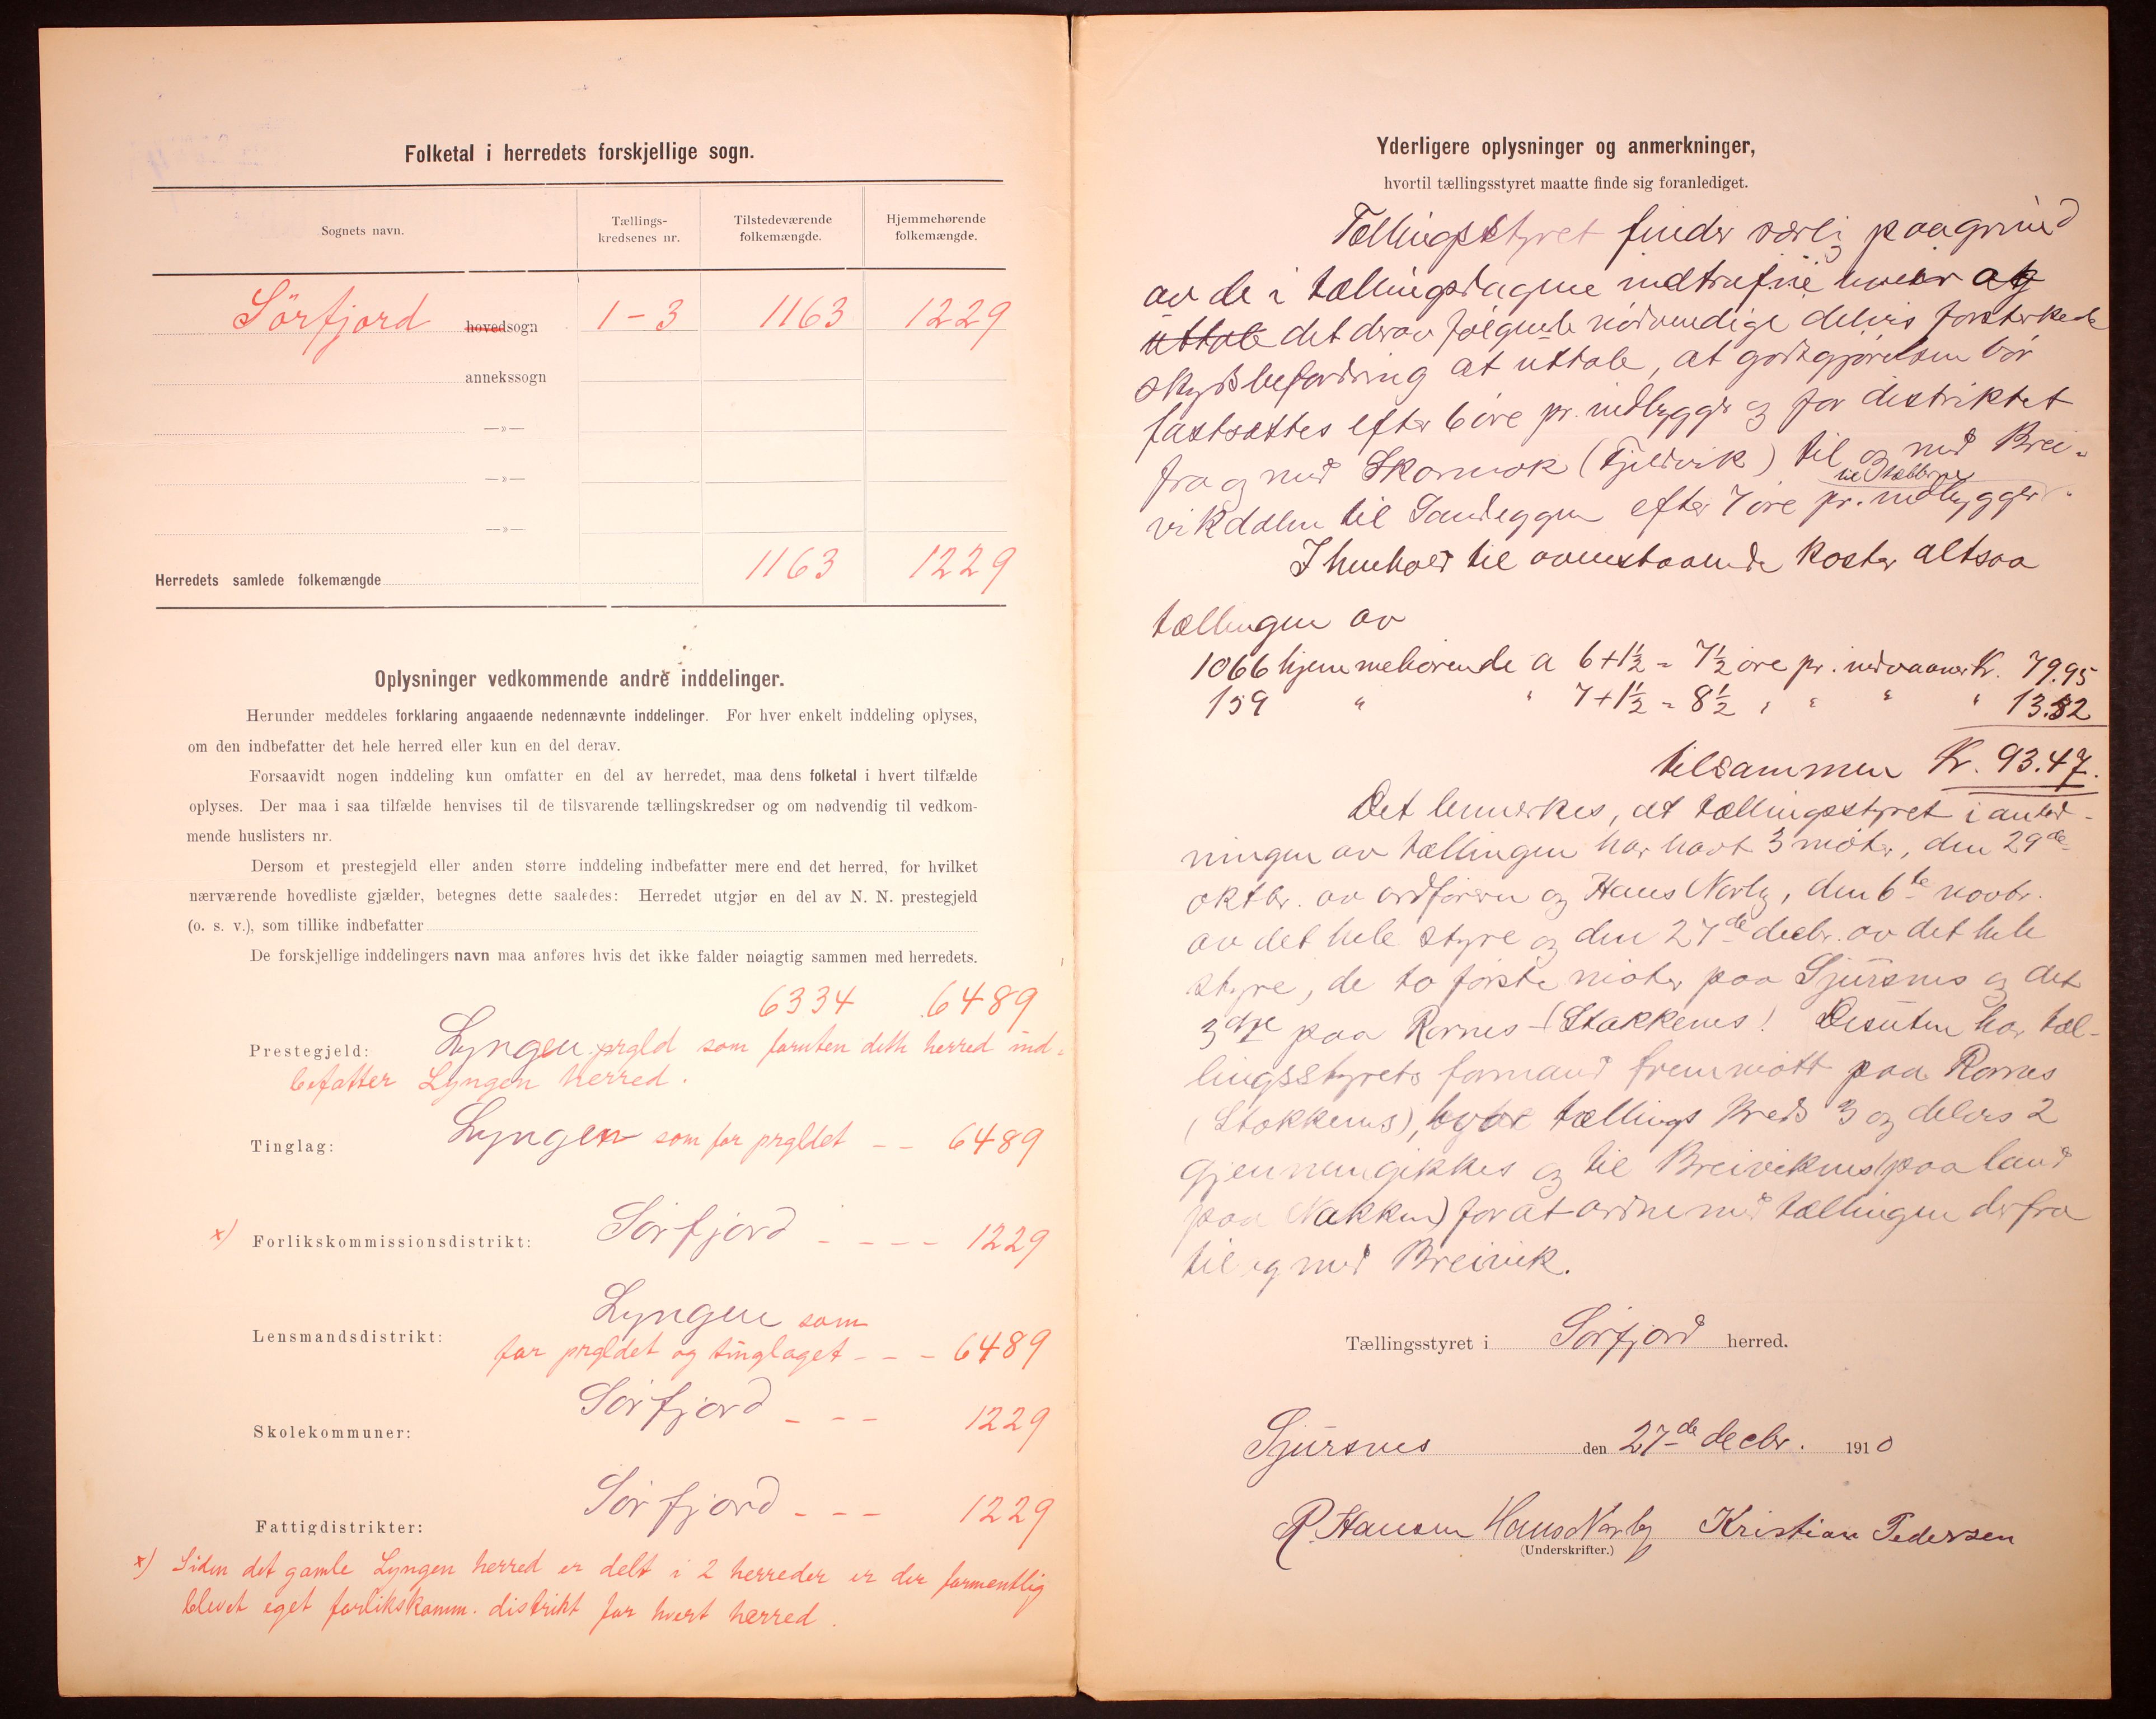 Folketal i herredets forskjellige sogn.
Sognets navn.
Tællings-
kredsenes nr.
Tilstedeværende
folkemængde.
Hjemmehørende
folkemængde.
Sörfjord hovedsogn 1-3 1163 1229
annekssogn
—»—
—»—
—»—
Herredets samlede folkemængde 1163 1229
Oplysninger vedkommende andre inddelinger.
Herunder meddeles forklaring angaaende nedennævnte inddelinger. For hver enkelt inddeling oplyses,
om den indbefatter det hele herred eller kun en del derav.
Forsaavidt nogen inddeling kun omfatter en del av herredet, maa dens folketal i hvert tilfælde
oplyses. Der maa i saa tilfælde henvises til de tilsvarende tællingskredser og om nødvendig til vedkom-
mende huslisters nr.
Dersom et prestegjeld eller anden større inddeling indbefatter mere end det herred, for hvilket
nærværende hovedliste gjælder, betegnes dette saaledes: Herredet utgjør en del av N. N. prestegjeld
(o. s. v.), som tillike indbefatter
De forskjellige inddelingers navn maa anføres hvis det ikke falder nøiagtig sammen med herredets.
6334 6489
Prestegjeld: Lyngen prgld som foruten dette herred ind-
befatter Lyngen herred.
Tinglag: Lyngen som for prgldet - - 6489
x) Forlikskommissionsdistrikt: Sörfjord - - - - 1229
Lensmandsdistrikt: Lyngen som
for prgldet og tinglaget - - - 6489
Skolekommuner: Sörfjord - - - 1229
Fattigdistrikter: Sörfjord - - - 1229
x) Siden det gamle Lyngen herred er delt i 2 herreder er der formentlig
blevet eget forlikskomm. distrikt for hvert herred.
Yderligere oplysninger og anmerkninger,
hvortil tællingsstyret maatte finde sig foranlediget.
Tællingsstyret finder særlig paagrund
av de i tællingsdagene indtrufne og
uttale det derav følgende nødvendige delvis forsterkede
skydsbefordring at uttale, at godtgjørelsen bör
fastsættes efter 6 öre pr. indbygger og for distriktet
fra og med Skarmok (Fjeldvik) til og med Brei-
vikdalen til Sandeggen efter 7 öre pr. indbygger.
I henhold til ovenstaaende koster altsaa
tællingen av
1066 hjemmehörende a 6+1½ = 7½ öre pr. indvaaner Kr. 79.95
159 " " 7+1½ = 8½ " " " " 13.52
tilsammen Kr. 93.47.
Det bemerkes, at tællingsstyret i anled-
ningen av tællingen har havt 3 möter, den 29de
oktbr. av ordföreren og Hans Norby, den 6te novbr.
av det hele styre og den 27de decbr. av det hele
styre, de to förste möter paa Sjursnes og det
3dje paa Rornes (Stakkenes). Desuten har tæl-
lingsstyrets formand fremmött paa Rornes
(Stokkenes), hvor tællings kreds 3 og delvis 2
gjennemgikkes og til Breiviknes (paa land
paa Nakken) for at ordne med tællingen derfra
til og med Breivik.
Tællingsstyret i Sörfjord herred.
Sjursnes den 27de decbr. 1910
R. Hansen Hans Norby Kristian Pedersen
(Underskrifter.)